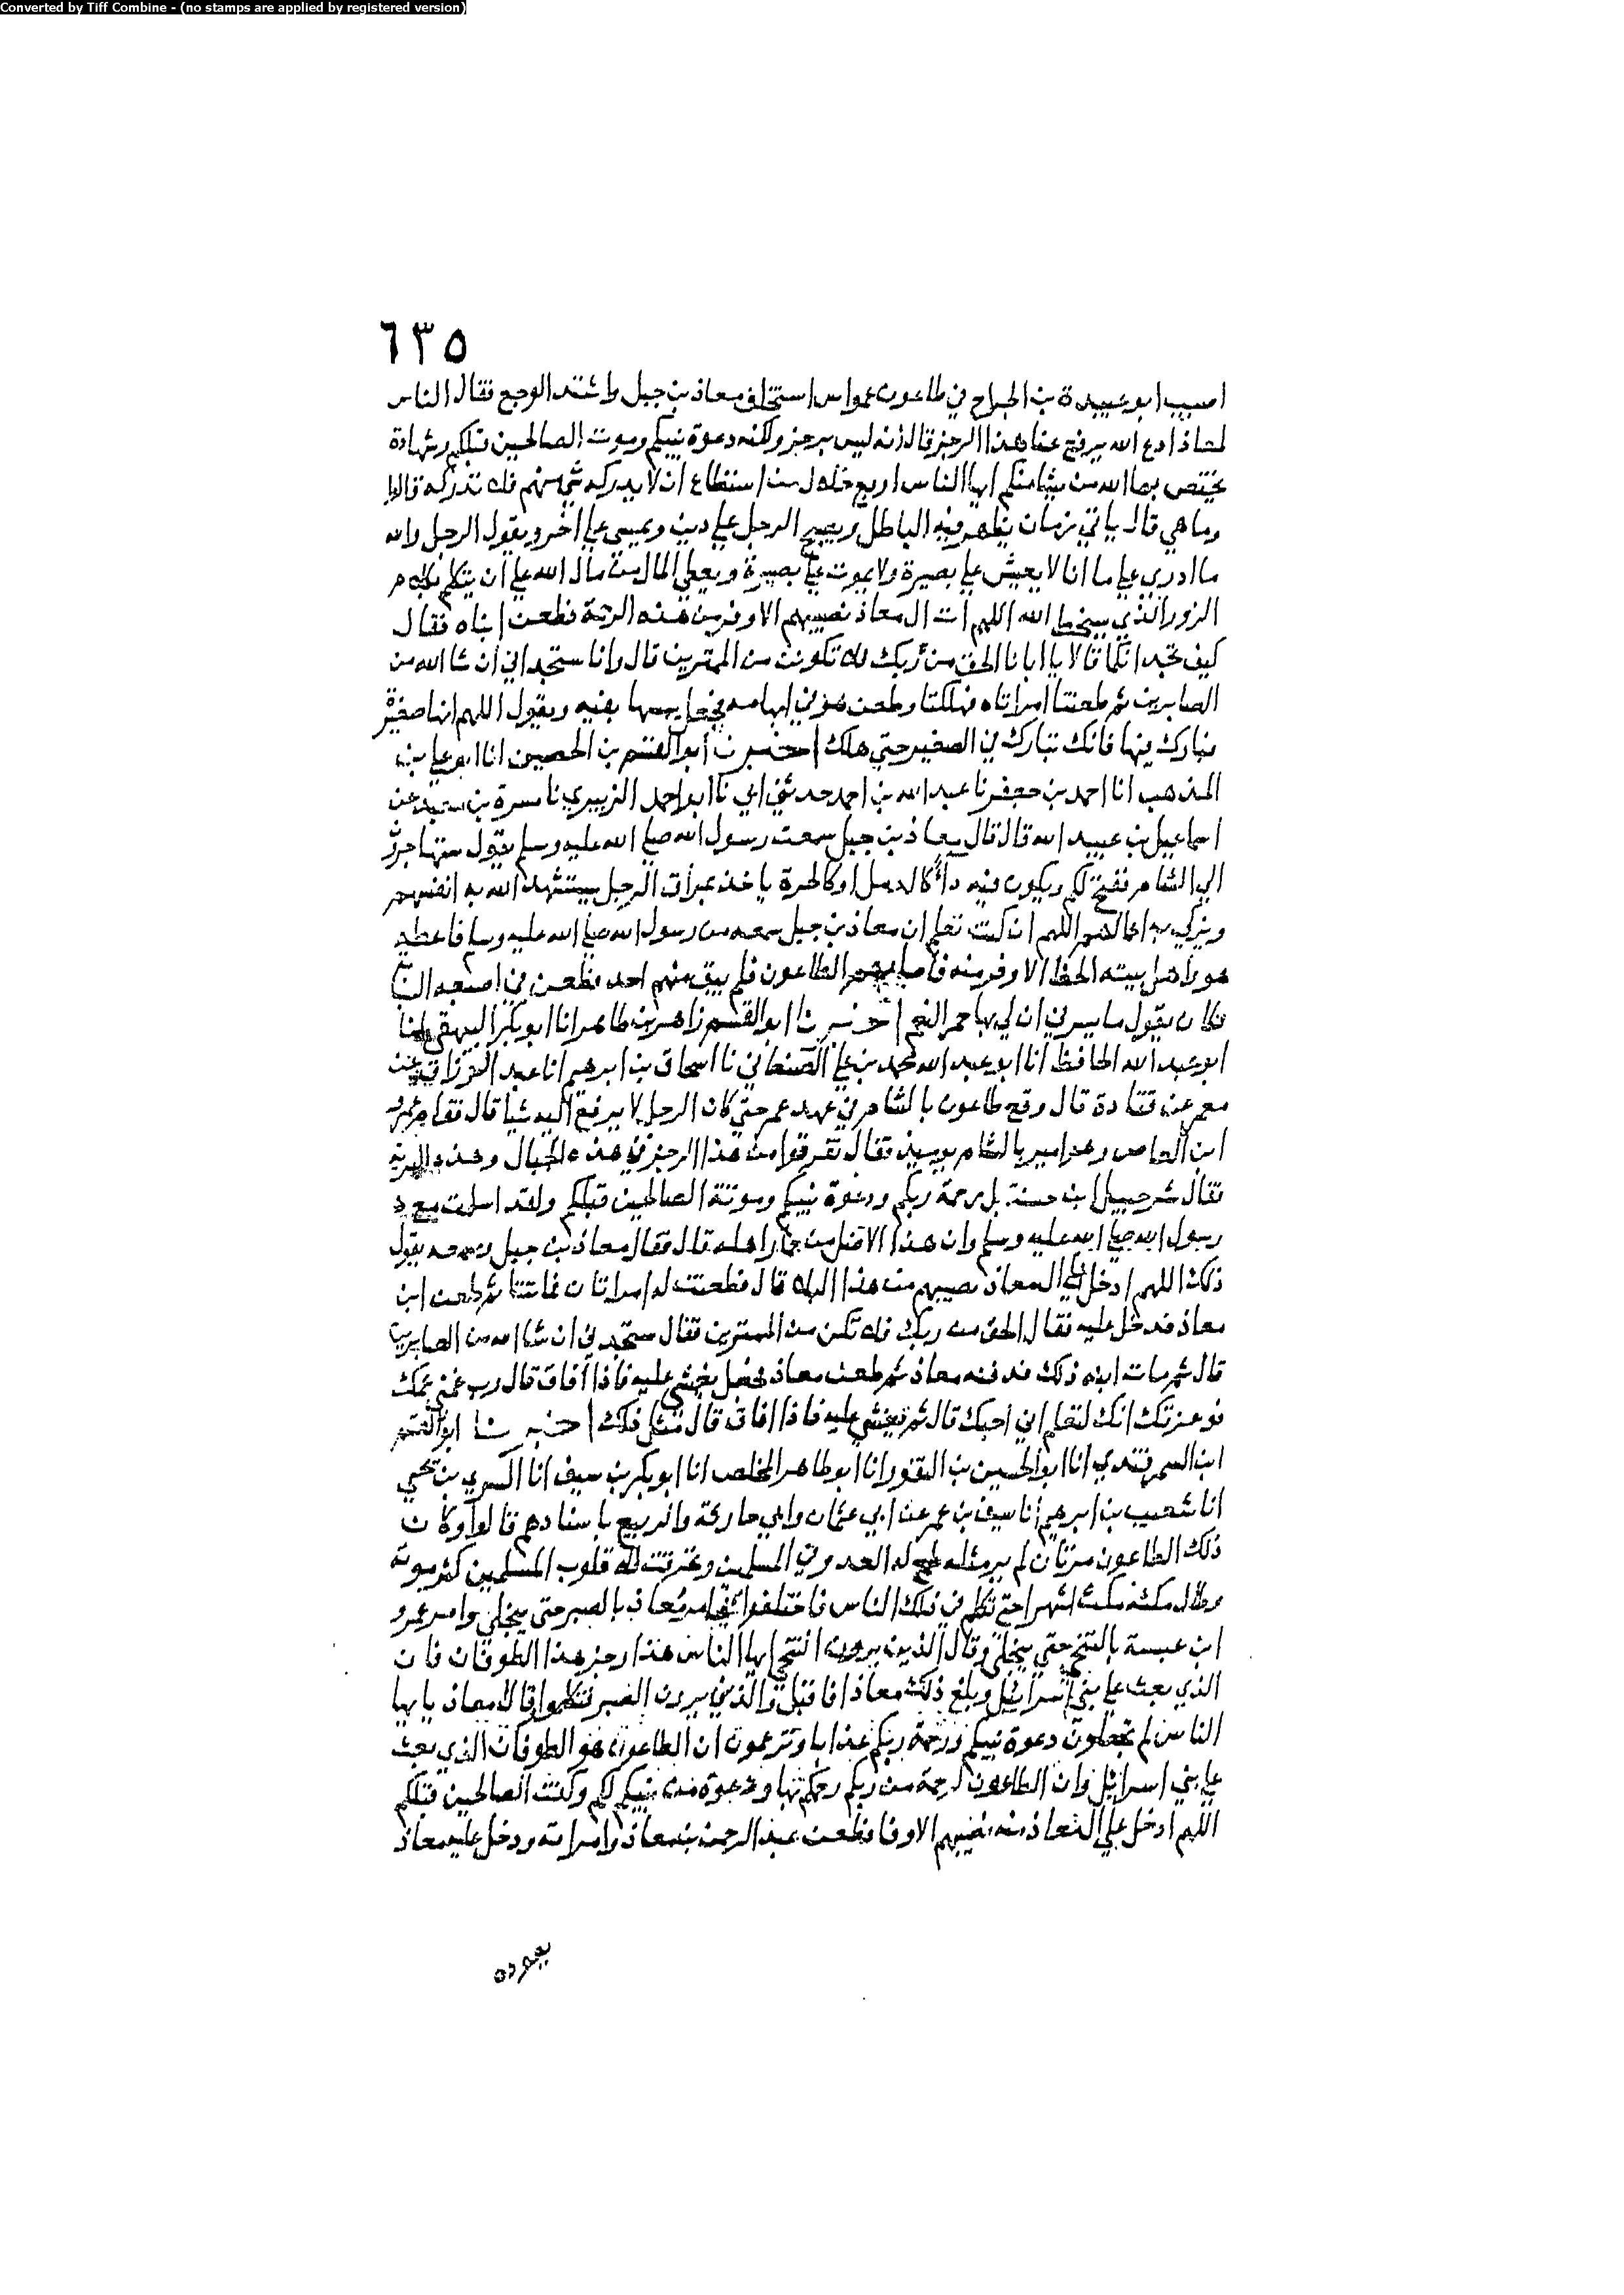 Converted by Tiff Combine - (no stamps are applied by registered version)
٦٣٥
اصيب ابو عبيدة بن الجراح في طاعون عمواس استخلف معاذ بن جبل واشتد الوجع فقال الناس
لمعاذ ادع الله يرفع عنا هذا الرجز قال انه ليس برجز ولكنه دعوة نبيكم وموت الصالحين قبلكم وشهادة
يختص بها الله من يشا منكم ايها الناس اربع خلال من استطاع ان لا يدركه شي منهم فلا تدركه قالوا
وما هي قال ياتي زمان يظهر فيه الباطل ويصبح الرجل علي دين ويمسي علي اخر ويقول الرجل والله
ما ادري علي ما انا لا يعيش علي بصيرة ولا يموت علي بصيرة ويعطي المال من مال الله علي ان يتكلم بكلام
الزور الذي يسخط الله اللهم ات ال معاذ نصيبهم الاوفر من هذه الرحمة فطعن ابناه فقال
كيف تجدانكما قالا يا ابانا الحق من ربك فلا تكونن من الممترين قال وانا ستجداني ان شا الله من
الصابرين ثم طعنتا امراتاه فهلكتا وطعن هو في ابهامه فجعل يمسها بفيه ويقول اللهم انها صغيرة
فبارك فيها فانك تبارك في الصغير حتي هلك اخبرنا ابو القسم بن الحصين انا ابو علي بن
المذهب انا احمد بن جعفر نا عبد الله بن احمد حدثني ابي نا ابو احمد الزبيري نا مسرة بن معبد عن
اسماعيل بن عبيد الله قال قال معاذ بن جبل سمعت رسول الله صلي الله عليه وسلم يقول ستهاجرون
الي الشام فتفتح لكم ويكون فيه داء كالدمل او كالحرة ياخذ بمراق الرجل يستشهد الله به انفسهم
ويزكي به اعمالهم اللهم ان كنت تعلم ان معاذ بن جبل سمعه من رسول الله صلي الله عليه وسلم فاعطه
هو واهل بيته الحظ الاوفر منه فاصابهم الطاعون فلم يبق منهم احد فطعن في اصبعه السبابة
فكان يقول ما يسرني ان لي بها حمر النعم اخبرنا ابو القسم زاهر بن طاهر انا ابو بكر البيهقي انا
ابو عبد الله الحافظ انا ابو عبد الله محمد بن علي الصنعاني نا اسحاق بن ابرهيم انا عبد الرزاق عن
معمر عن قتادة قال وقع طاعون بالشام في عهد عمر حتي كان الرجل لا يرفع اليه شيا قال فقام عمرو
ابن العاص وهو امير بالشام يوميذ فقال تفرقوا من هذا الرجز في هذه الجبال وهذه البرية
فقال شرحبيل ابن حسنة بل رحمة ربكم ودعوة نبيكم وموتة الصالحين قبلكم ولقد اسلمت مع
رسول الله صلي الله عليه وسلم وان هذا الاضل من حمار اهله قال فقال معاذ بن جبل وسمعه يقول
ذلك اللهم ادخل علي ال معاذ نصيبهم من هذا البلاء قال فطعنت له امراتان فماتتا ثم طعن ابن
معاذ فدخل عليه فقال الحق من ربك فلا تكن من الممترين فقال ستجدني ان شا الله من الصابرين
قال ثم مات ابنه ذلك فدفنه معاذ ثم طعن معاذ فجعل يغشي عليه فاذا افاق قال رب غمني غمك
فوعزتك انك لتعلم اني احبك قال ثم يغشي عليه فاذا افاق قال مثل ذلك اخبرنا ابو القسم
ابن السمرقندي انا ابو الحسين بن النقور انا ابو طاهر المخلص انا ابو بكر بن سيف انا السري بن يحيي
انا شعيب بن ابرهيم انا سيف بن عمر عن ابي عثمان وابي حارثة والربيع باسنادهم قالوا وكان
ذلك الطاعون موتان لم ير مثله طمع له العدو في المسلمين وتخوفت له قلوب المسلمين كثر موته
وطال مكثه مكث اشهرا حتي تكلم في ذلك الناس فاختلفوا فامر معاذ بالصبر حتي ينجلي وامر عمرو
ابن عبسة بالتنحي حتي ينجلي وقال الذين يرون التنحي ايها الناس هذا رجز هذا الطوفان
الذي بعث علي بني اسرائيل وبلغ ذلك معاذا فاقبل والذين يرون الصبر فتكلموا قال معاذ يا ايها
الناس لم تجعلون دعوة نبيكم ورحمة ربكم عذابا وتزعمون ان الطاعون هو الطوفان الذي بعث
علي بني اسرائيل وان الطاعون لرحمة من ربكم رحمكم بها ودعوة من نبيكم لكم وكفت الصالحين قبلكم
اللهم ادخل علي ال معاذ منه نصيبهم الاوفا فطعن عبد الرحمن بن معاذ وامراته ودخل عليه معاذ
يعوده